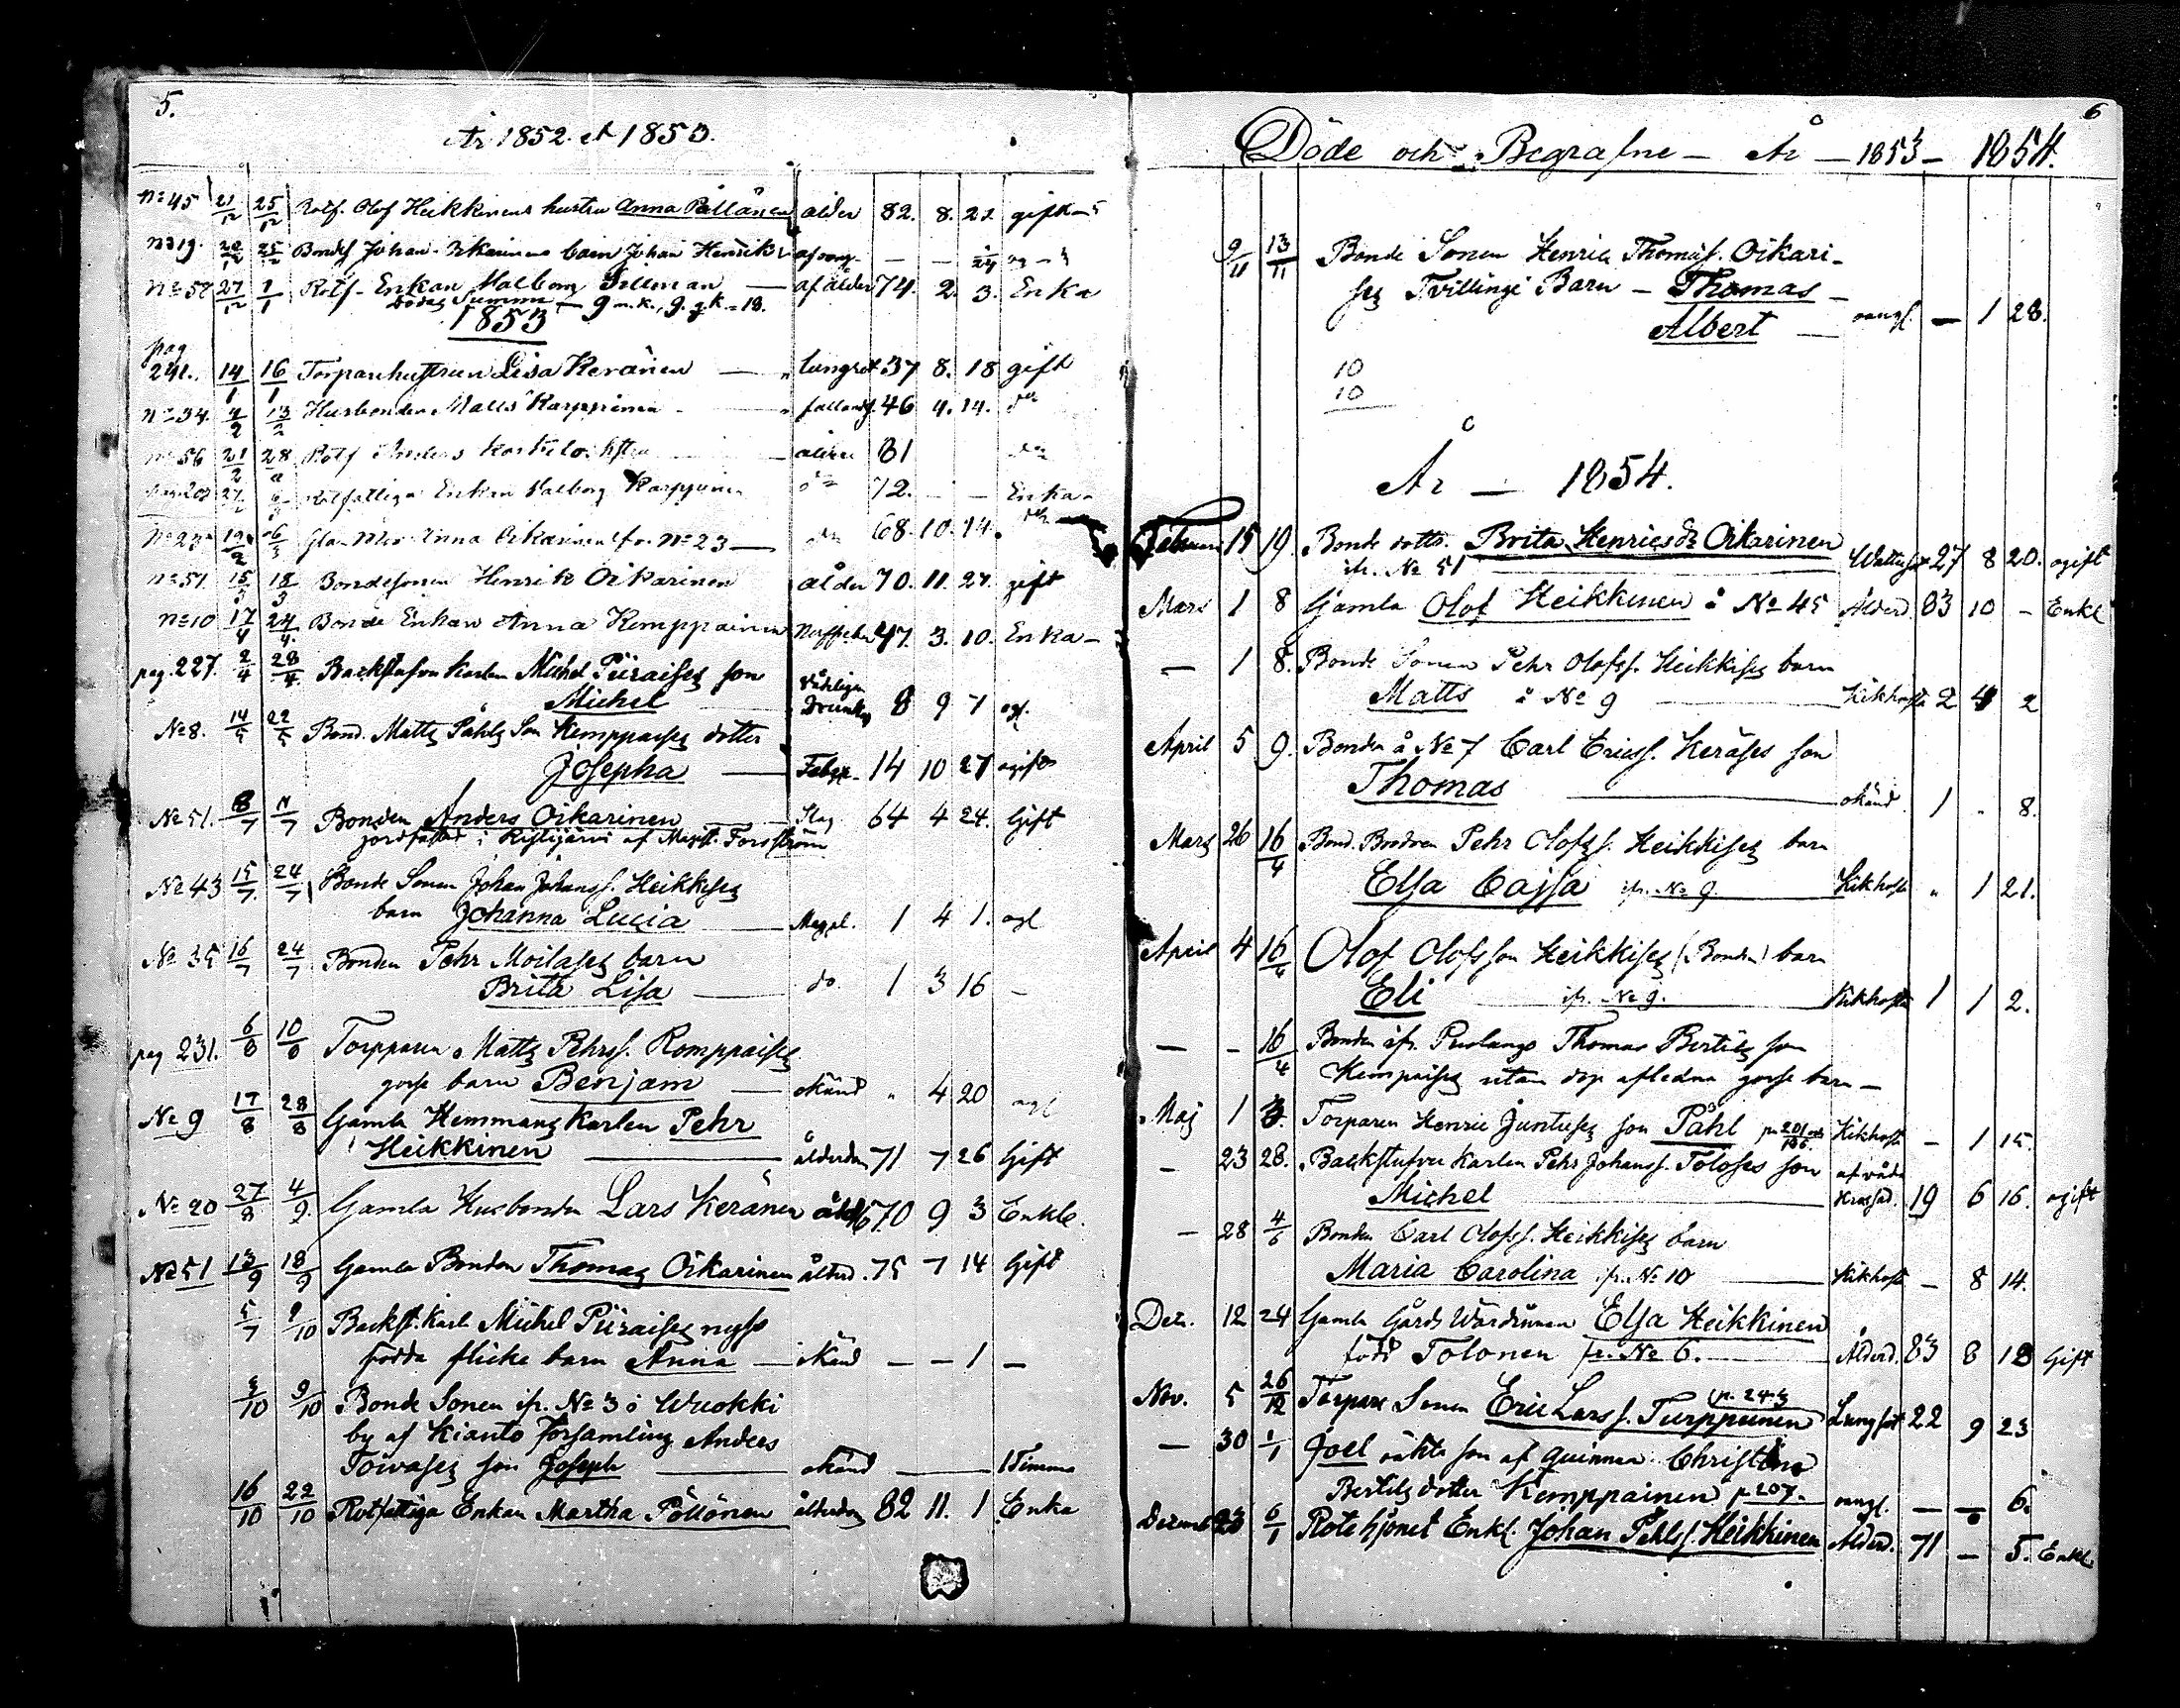 5.
År 1852. et 1853.
No 45 21/12 25/12 Rotf. Olof Heikkinens hustru Anna Pällänen ålder 82. 8. 21. gift
No 19. 20/12 25/12 Johan Oikarinens barn Johan Henrik
No 58 27/12 1/1 Rotf. Enkan Valborg af ålder 74. 2. 3. Enka
Dödas Summa 9 m.k., 9. q.k. = 18.
1853
pag
241. 14/1 16/1 Torparehustrun Lisa Keränen lungsot 37 8. 18 gift
No 34. 4/2 13/2 Husbonden Matts Karppinen 46 4. 14. do
No 56 21/2 28/2 Rotf Anders ålder 81 do
27/2 Rotfattiga Enkan Valborg Karppinen do 72. – – Enka
No 23 Anna Oikarinen fr. No 23 do 68. 10. 14. do
No 51 15/3 18/3 Bondesonen Henrik Oikarinen ålder 70. 11. 27. gift
No 10 17/4 24/4 Bonde Enkan Anna Kemppainen 47. 3. 10. Enka
pag. 227. 2/4 28/4 Backstufvu Karlen Michel Piiraises son
Michel Vådligen Drunkn. 8 9 7 ogf.
No 8. 14/5 22/5 Bond. Matts Påhls Son Kemppaises dotter
Josepha 14 10 27 ogift
No 51. 8/7 11/7 Bonden Anders Oikarinen Slag 64 4 24. Gift
jordfästad i Ristijärvi af Magist. Forsström
No 43 15/7 24/7 Bonde Sonen Johan Johanss. Heikkises
barn Johanna Lucia 1 4 1. ogf
No 35 16/7 24/7 Bonden Pehr Moilases barn
Brita Lisa do. 1 3 16 –
pag 231. 6/8 10/8 Torparen Matts Pehrss. Romppaises
gosse barn Benjam okänd " 4 20 ogf
No 9 17/8 28/8 Gamla Hemmans Karlen Pehr
Heikkinen ålderdom 71 7 26 Gift
No 20 27/8 4/9 Gamla Husbonden Lars Keränen 70 9 3 Enkl.
No 51 13/9 18/9 Gamla Bonden Thomas Oikarinen ålderd. 75 7 14 Gift
5/7 9/10 Backst. Karl Michel Piiraises nyss
födda flicke barn Anna okänd – – 1 –
3/10 9/10 Bonde Sonen ifr. No 3 i Wuokki
by af Kianto församling Anders
Toivases son Joseph okänd 1 Timme
16/10 22/10 Rotfattiga Enkan Martha Pöllönen ålderdom 82 11. 1 Enka
6
Döde och Begrafne – År – 1853 – 1854.
9/11 13/11 Bonde Sonen Henric Thomass. Oikari-
ses Tvillinge Barn – Thomas –
Albert – – 1 28.
10
10
År – 1854.
Februari 15 19. Bonde dottr. Brita Henricsdr Oikarinen
ifr. No 51 Wattusot 27 8 20. ogift
Mars 1 8 Gamla Olof Heikkinen å No 45 Ålderd. 83 10 – Enkl
– 1 8. Bonde Sonen Pehr Olofss. Heikkises barn
Matts å No 9 Kikhosta 2 4 2
April 5 9. Bonden å No 7 Carl Ericss. Keräses son
Thomas okänd. 1 - 8.
Mars 26 16/4 Bond. Pehr Olofss. Heikkises barn
Elsa Cajsa ifr. No 9. Kikhosta " 1 21.
April 4 16/4 Olof Olofsson Heikkises (Bonden) barn
Eli ifr. No 9. Kikhosta 1 1 2.
– – 16/4 Bonden ifr. Puolango Thomas Bertils son
Kempaises utan dop afledna gosse barn –
Maj 1 Torparen Henric Juntuses son Påhl Kikhosta – 1 15.
– 23 28. Backstufvu Karlen Pehr Johanss. Toloses son af våda
Michel 19 6 16. ogift
– 28 4/6 Bonden Carl Olofss. Heikkises barn
Maria Carolina ifr. No 10 Kikhosta – 8 14.
Dec. 12 24 Gamla Gårds Wärdinnan Elsa Heikkinen
född Tolonen fr. No 6. Ålderd. 83 8 18 Gift
Nov. 5 26/12 Torpare Sonen Eric Larss. Turppunen p. 243 Lungsot 22 9 23
– 30 1/1 Joel oäkta son af Quinnan Christina
Bertils dotter Kemppainen p 207. – – 6.
Decemb 6/1 Rotehjonet Enkl. Johan Pehls. Heikkinen Ålderd. 71 – 5. Enkl